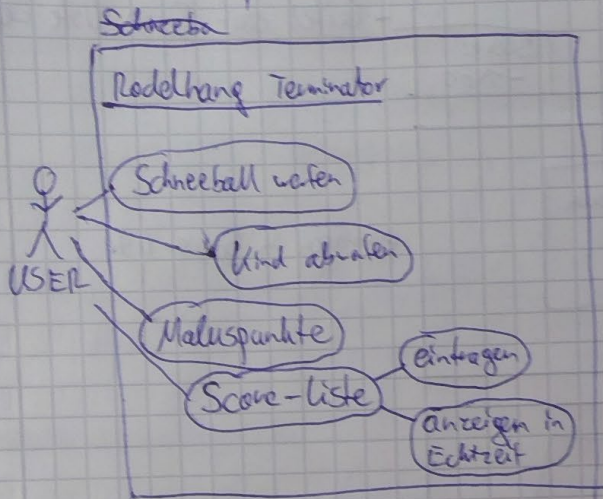 Schneeba
Rodelhang Terminator
Schneeball werfen
Kind abwerfen
USER
Maluspunkte
Score-Liste
eintragen
anzeigen in
Echtzeit